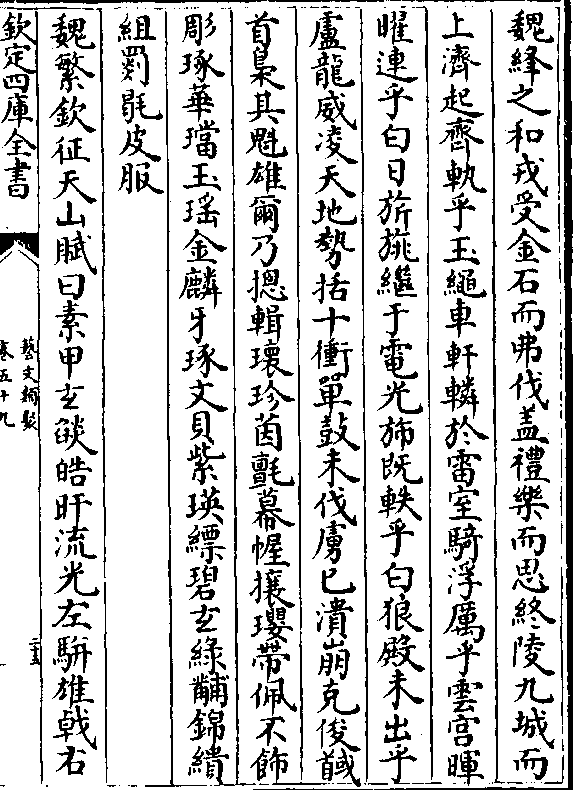 魏絳之和戎受金石而弗伐蓋禮樂而思終陵九城而
上濟起齊軌乎玉繩車軒轔於雷室騎浮厲乎雲宫暉
曜連乎白日旂旐繼于電光旆既軼乎白狼殿未出乎
盧龍威凌天地勢括十衝單鼓未伐虜已潰崩克俊馘
首梟其魁雄爾乃揔輯瓌珍茵氊幕幄攘瓔帶佩不飾
彫琢華璫玉瑶金麟牙琢文貝紫瑛縹碧玄綠黼錦繢
組罽毼皮服
魏繁欽征天山賦曰素甲玄燄皓旰流光左駢雄戟右
欽定四庫全書
藝文類聚
卷五十九
二十五